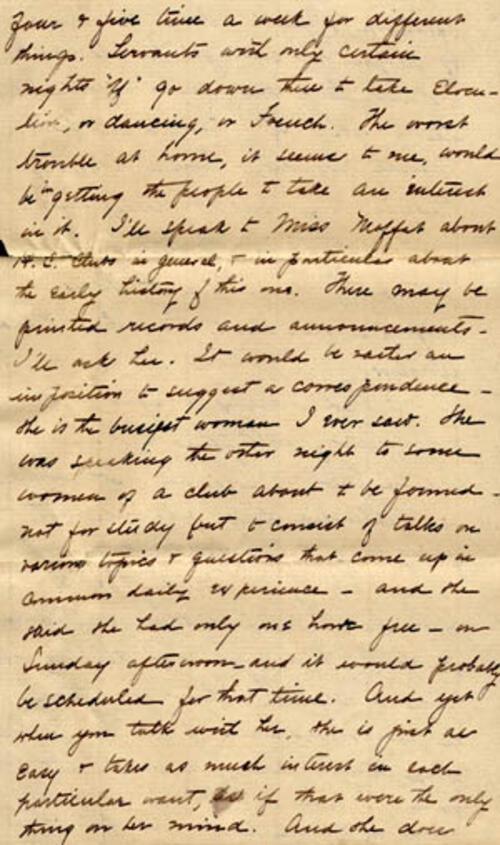 four & five times a week for different
things. Servants with only certain
nights "off" go down there to take Elocu-
tion, or dancing, or French. The worst
trouble at home, it seems to me, would
be in getting the people to take an interest
in it. I'll speak to Miss Moffat about
Clubs in general, & in particular about
the early history of this one. There may be
printed records and announcements -
I'll ask her. It would be rather an
imposition to suggest a correspondence -
she is the busiest woman I ever saw. She
was speaking the other night to some
women of a club about to be formed -
not for study but to consist of talks on
various topics & questions that come up in
common daily experience - and she
said she had only one hour free - on
Sunday afternoon - and it would probably
be scheduled for that time. And yet
when you talk with her, she is just as
easy & takes as much interest in each
particular want, as if that were the only
thing on her mind. And she does